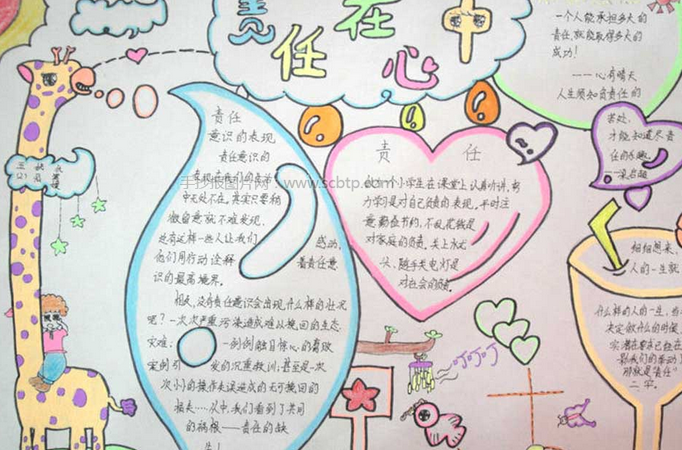 责任在心中
一个人能承担多大的
责任,就能取得多大的
成功!
——心有晴天
人生须知负责任的
苦处,
才能知道尽责
任的乐趣。
——梁启超
责任
意识的表现
责任意识的
表现在我们的生活
中无处不在。其实只要稍
微留意就不难发现,
总有这样一些人让我们 感动,
他们用行动诠释 着责任意
识的最高境界。
相反,没有责任意识会出现什么样的状况
呢?一次次严重污染造成难以挽回的生态
灾难; 一例例触目惊心的腐败
案例引 发的沉重教训;甚至是一次
次小的操作失误造成的无可挽回的
损失……从中,我们看到了共同
的祸根——责任的缺
失!
责 任
做为一个小学生在课堂上认真听讲,努
力学习是对自己负责的表现。平时注
意勤俭节约,不乱花钱是
对家庭的负责,关上水龙
头,随手关电灯是
对社会的负责。
手抄报图片网:www.scbtp.com
叮叮叮
细细想来,
人的一生就
什么样的人的一生,当
决定做什么的时候,
实潜在着自己的
影响我们的举动
那就是"责任"
二字。